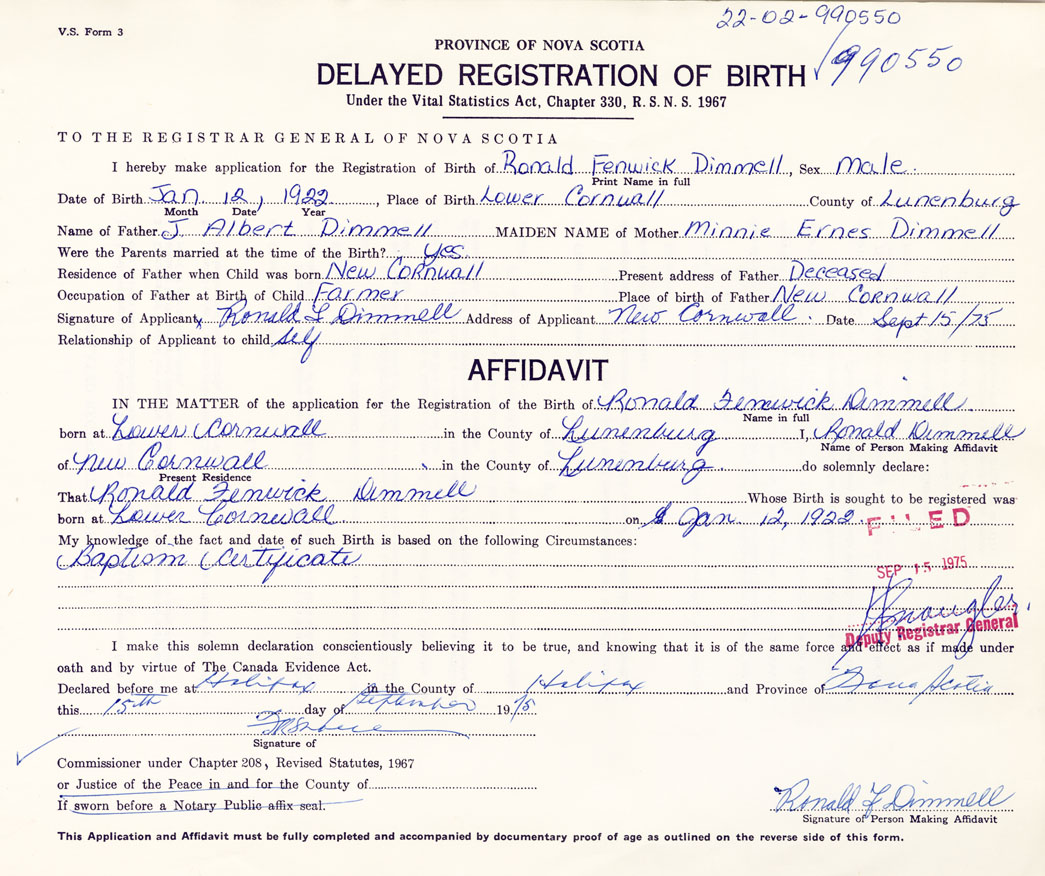 22-02-990550
V.S. Form 3
PROVINCE OF NOVA SCOTIA
990550
DELAYED REGISTRATION OF BIRTH
Under the Vital Statistics Act, Chapter 330, R.S.N.S. 1967
TO THE REGISTRAR GENERAL OF NOVA SCOTIA
I hereby make application for the Registration of Birth of Ronald Fenwick Dimmell, Sex Male.
Print Name in full
Date of Birth Jan 12, 1922, Place of Birth Lower Cornwall County of Lunenburg
Month Date Year
Name of Father J. Albert Dimmell MAIDEN NAME of Mother Minnie Ernes Dimmell
Were the Parents married at the time of the Birth? Yes
Residence of Father when Child was born New Cornwall Present address of Father Deceased
Occupation of Father at Birth of Child Farmer Place of birth of Father New Cornwall
Signature of Applicant x Ronald F Dimmell Address of Applicant New Cornwall. Date Sept 15/75
Relationship of Applicant to child self
AFFIDAVIT
IN THE MATTER of the application for the Registration of the Birth of Ronald Fenwick Dimmell
Name in full
born at Lower Cornwall in the County of Lunenburg I, Ronald Dimmell
Name of Person Making Affidavit
of New Cornwall in the County of Lunenburg do solemnly declare:
Present Residence
That Ronald Fenwick Dimmell Whose Birth is sought to be registered was
born at Lower Cornwall on Jan 12, 1922.
FILED
My knowledge of the fact and date of such Birth is based on the following Circumstances:
Baptism Certificate
SEP 15 1975
Deputy Registrar General
I make this solemn declaration conscientiously believing it to be true, and knowing that it is of the same force and effect as if made under
oath and by virtue of The Canada Evidence Act.
Declared before me at Halifax in the County of Halifax and Province of Nova Scotia
this 15th day of September 1975
Signature of
Commissioner under Chapter 208, Revised Statutes, 1967
or Justice of the Peace in and for the County of
If sworn before a Notary Public affix seal.
Ronald F Dimmell
Signature of Person Making Affidavit
This Application and Affidavit must be fully completed and accompanied by documentary proof of age as outlined on the reverse side of this form.